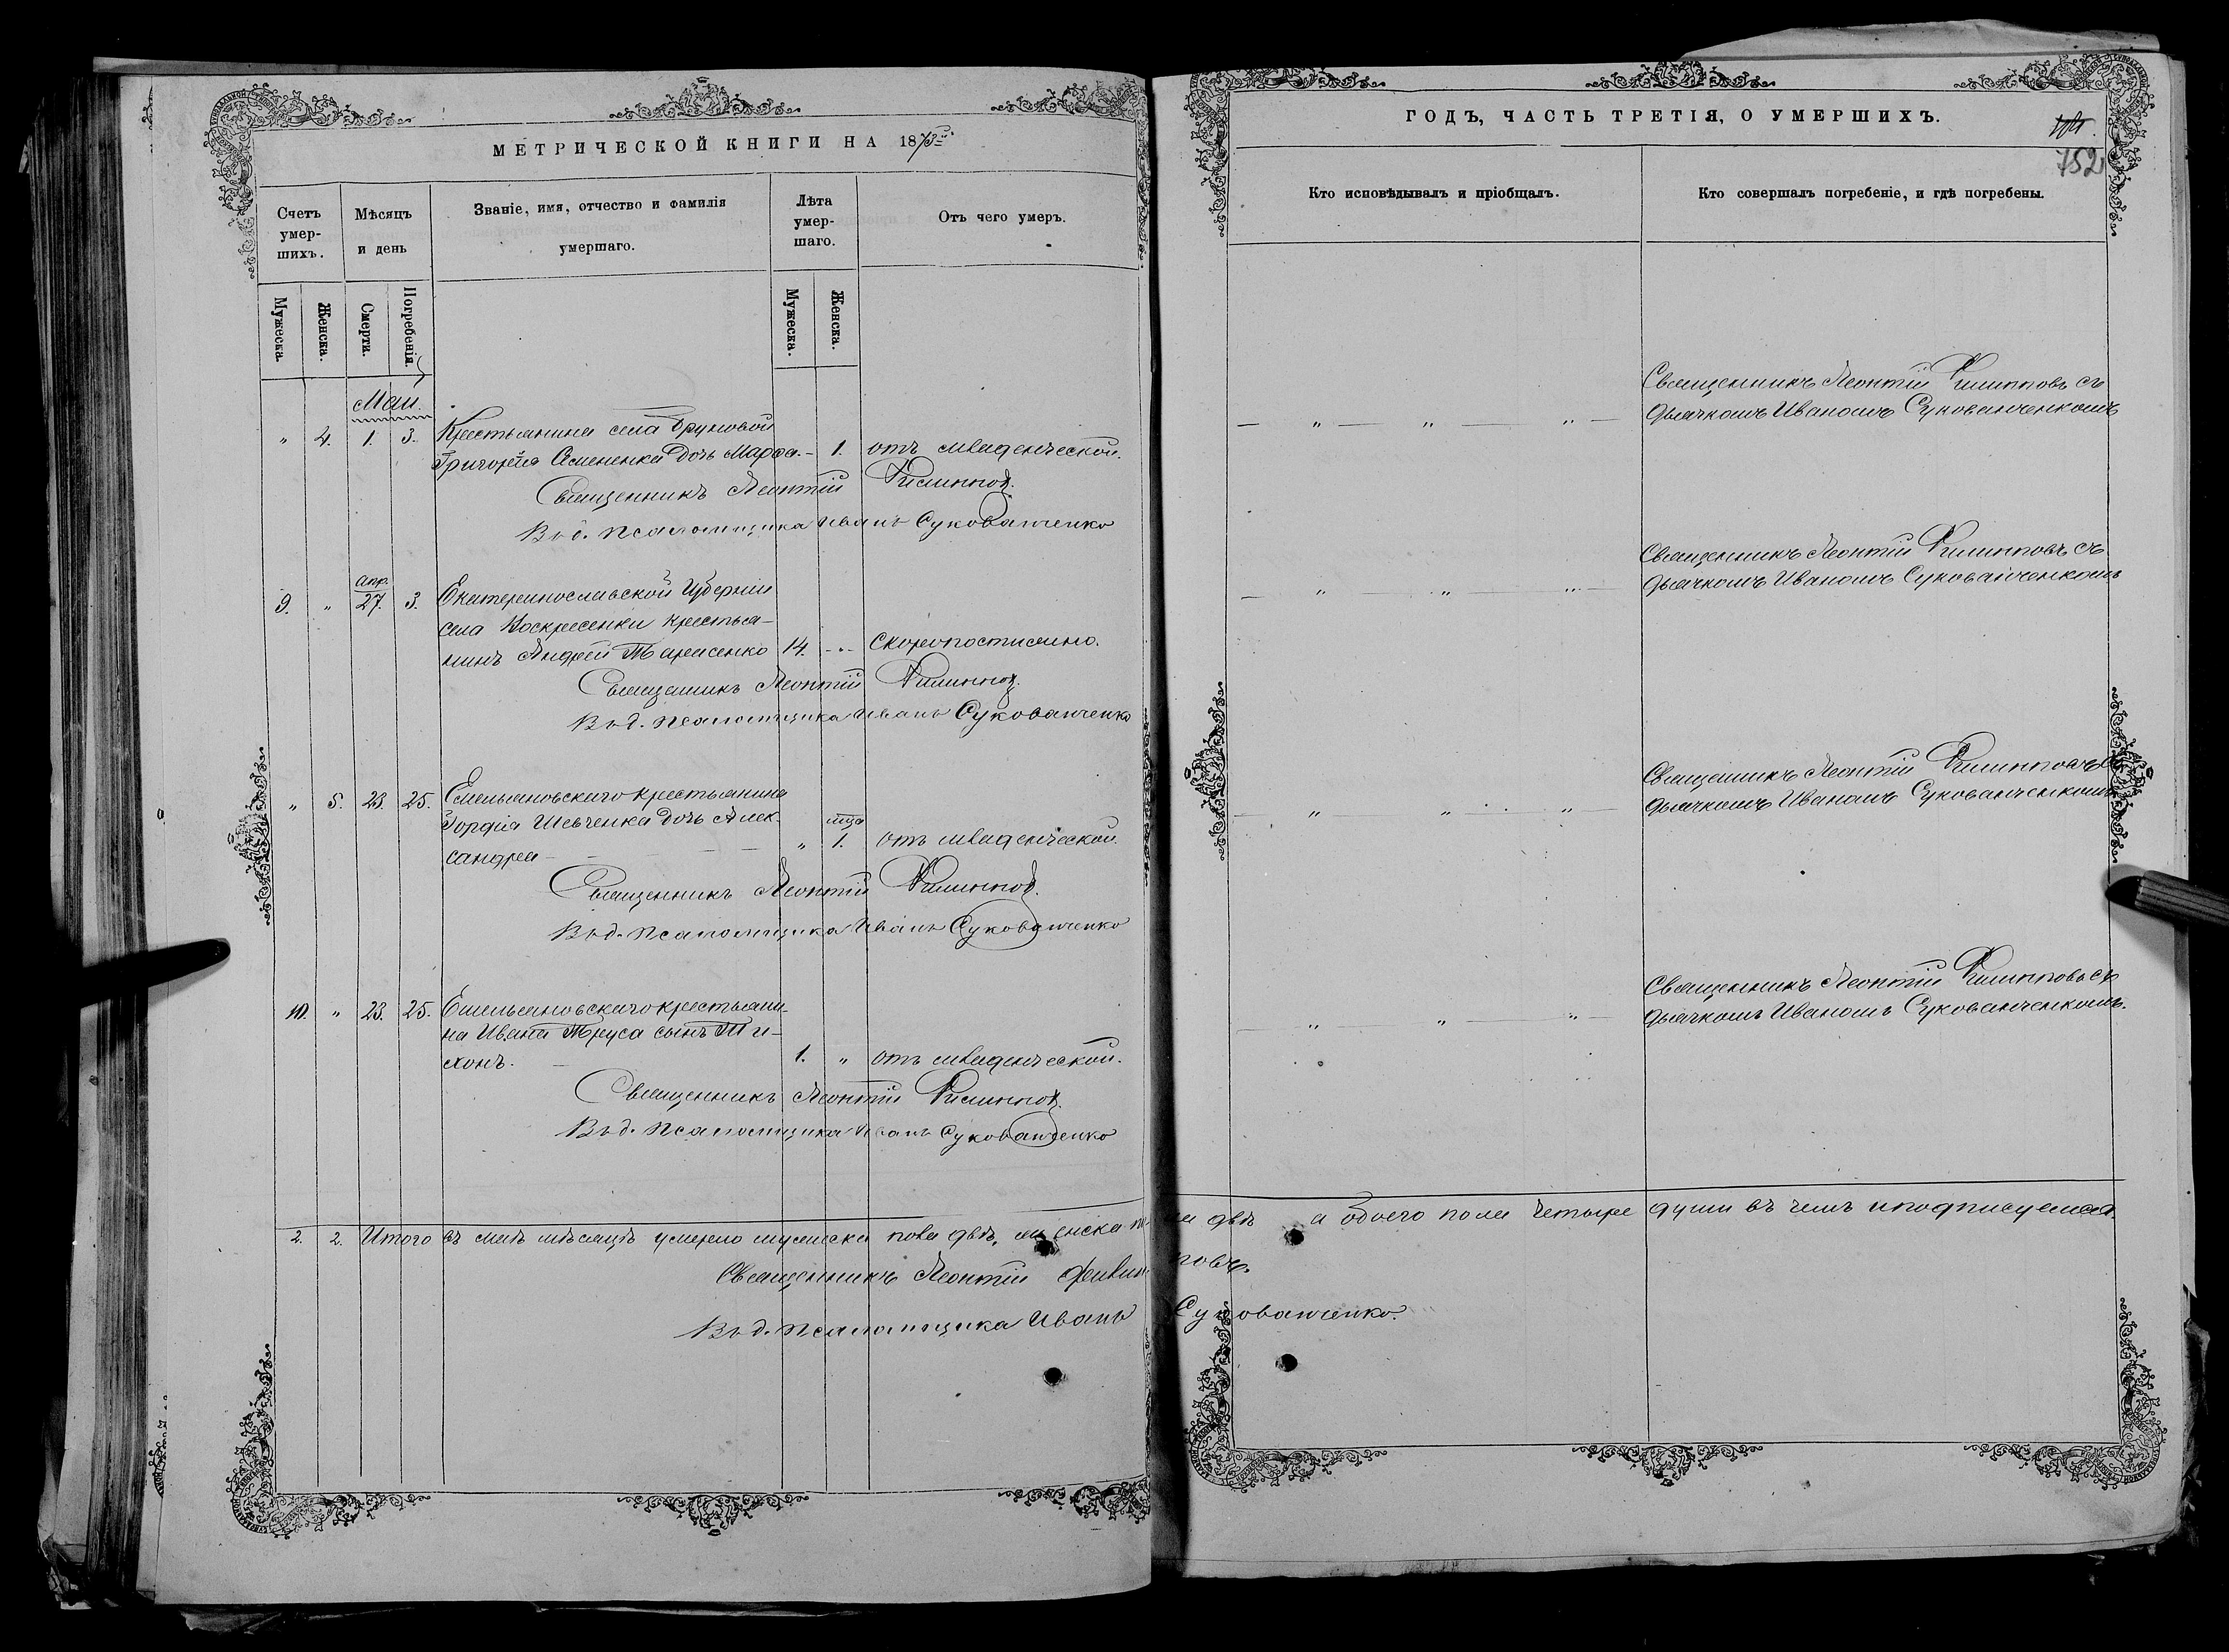 МЕТРИЧЕСКОЙ КНИГИ НА 1873й
Счетъ умер-шихъ.
Мѣсяцъ и день
Званіе, имя, отчество и фамилія умершаго.
Лѣта умер-шаго.
Отъ чего умеръ.
Мужеска.
Женска.
Смерти.
Погребенія.
Мужеска.
Женска.
Маи.
„ 4. 1. 3. Крестьянина села
Григорія Семененка дочь Марфа. – 1. отъ младенческой.
Священникъ Леонтій Филиппов.
В. д. псаломщика Иванъ Сукованченко
апр.
9. „ 27. 3. Екатеринославской Губерніи
села Воскресенки крестья-
нинъ Андрей Тарасенко 14. - „ - Скоропостижно.
Священникъ Леонтій Филиппов.
В. д. псаломщика Иванъ Сукованченко
„ 5. 23. 25. Емельяновскаго крестьянина
Гордія Шевченка дочь Алек-
мца
сандра – – – – „ 1. отъ младенческой.
Священникъ Леонтій Филиппов.
В. д. псаломщика Иванъ Сукованченко
10. „ 23. 25. Емельяновскаго крестьяни-
на Ивана Труса сынъ Ти-
хонъ. – 1. „ отъ младенческой.
Священникъ Леонтій Филиппов.
В. д. псаломщика Иванъ Сукованченко
2. 2. Итого въ маѣ мѣсяцѣ умерло мужеска пола двѣ, женска по-
Священникъ Леонтій Филип
В. д. псаломщика Иванъ
ГОДЪ, ЧАСТЬ ТРЕТІЯ, О УМЕРШИХЪ.
752
Кто исповѣдывалъ и пріобщалъ.
Кто совершалъ погребеніе, и гдѣ погребены.
Священникъ Леонтій Филипповъ съ
— „ — „ — „ — дьячкомъ Иваномъ Сукованченкомъ
Священникъ Леонтій Филипповъ съ
— „ — „ — „ — дьячкомъ Иваномъ Сукованченкомъ
Священникъ Леонтій Филипповъ съ
— „ — „ — „ — дьячкомъ Иваномъ Сукованченкомъ
Священникъ Леонтій Филипповъ съ
— „ — „ — „ — дьячкомъ Иваномъ Сукованченкомъ.
ла двѣ а обоего пола четыре души въ чемъ и подписуемся.
повъ.
Сукованченко.